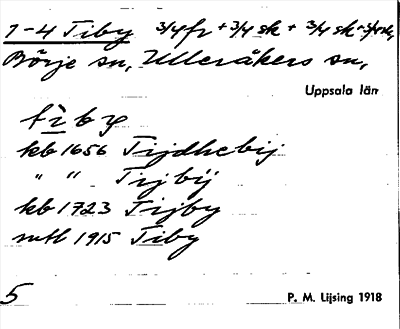 1-4 Tiby 3/4 fr + 3/4 sk + 3/4 sk + 3/4 sk,
Börje sn, Ulleråkers sn,
Uppsala län
tìby
kb 1656 Tijdhebij
" " Tijbij
kb 1723 Tijby
mtl 1915 Tiby
5
P. M. Lijsing 1918